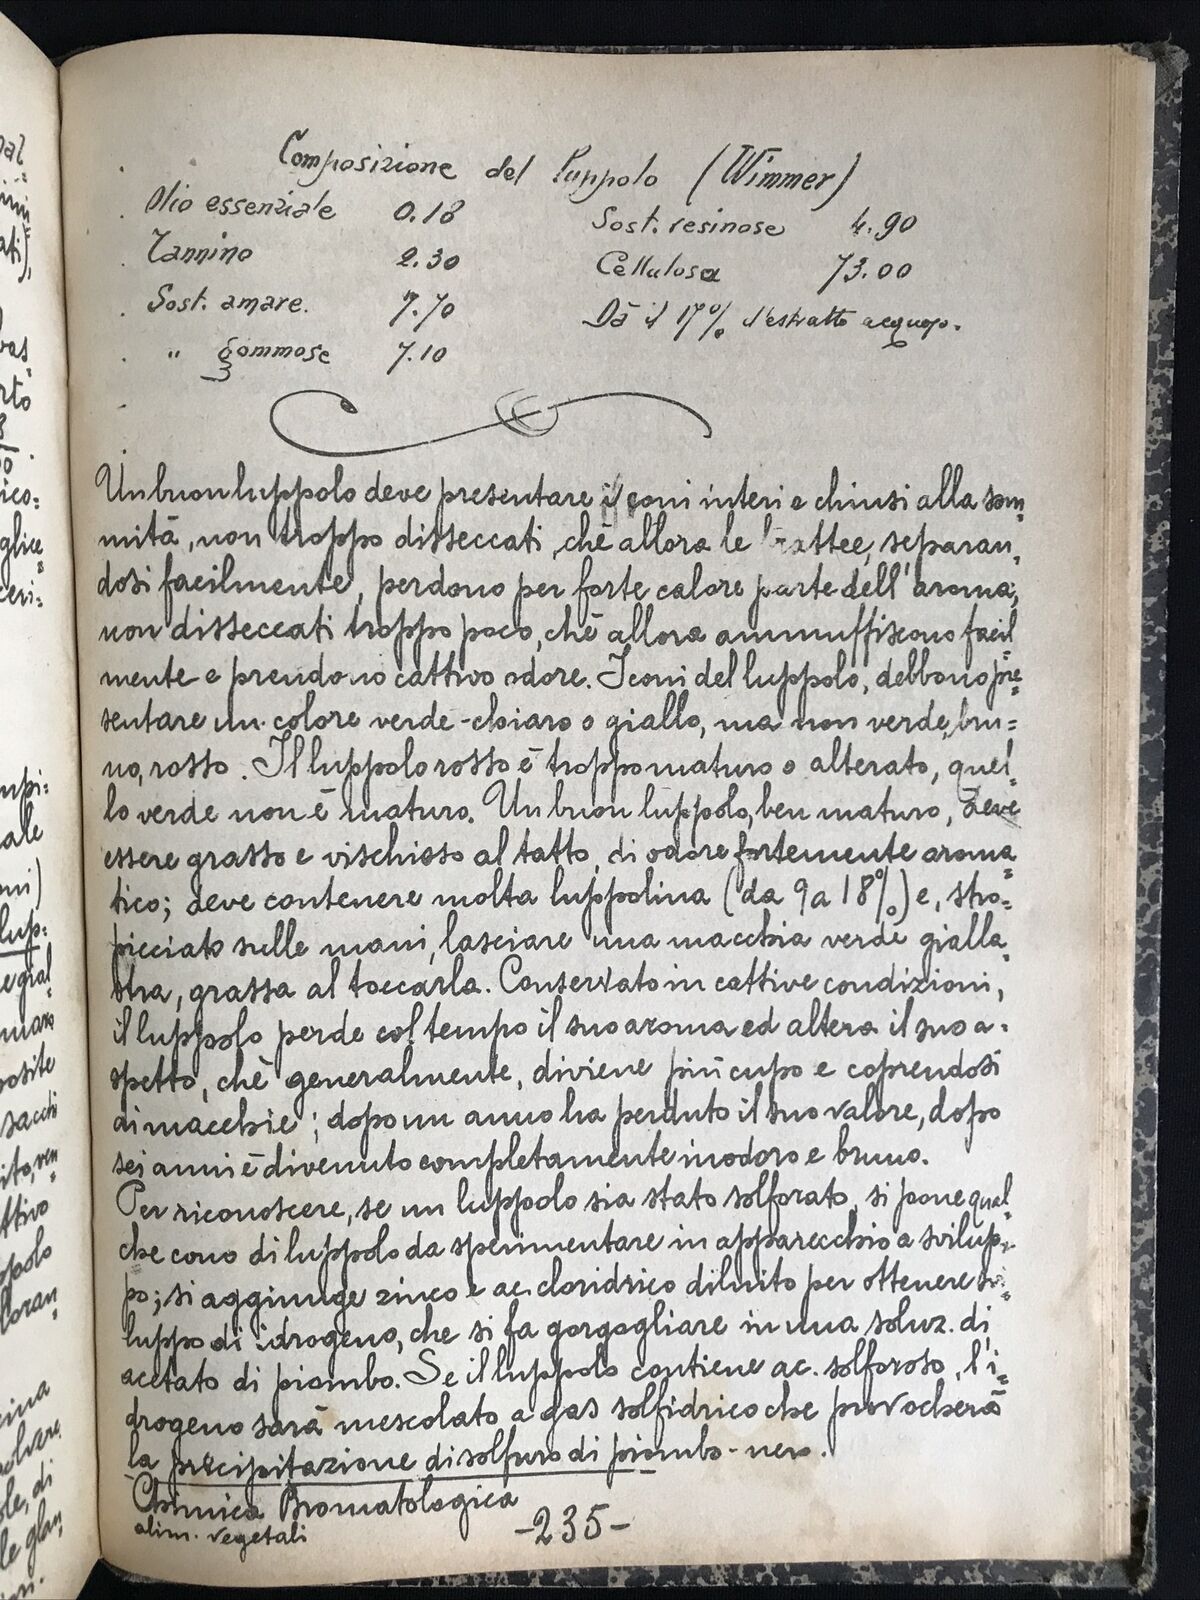 Composizione del Luppolo (Wimmer)
Olio essenziale 0.18 Sost. resinose 4.90
Tannino 2.30 Cellulosa 73.00
Sost. amare. 7.70 Dà il 17% d'estratto acquoso.
" gommose 7.10
Un buon luppolo deve presentare i coni interi e chiusi alla som=
mità, non troppo disseccati, chè allora le brattee, separan=
dosi facilmente, perdono per forte calore parte dell'aroma;
non disseccati troppo poco, chè allora ammuffiscono facil=
mente e prendono cattivo odore. I coni del luppolo, debbono pre=
sentare un colore verde-chiaro o giallo, ma non verde, bru=
no, rosso. Il luppolo rosso è troppo maturo o alterato, quel=
lo verde non è maturo. Un buon luppolo, ben maturo, deve
essere grasso e vischioso al tatto, di odore fortemente aroma=
tico; deve contenere molta luppolina (da 9 a 18%) e, stro=
picciato sulle mani, lasciare una macchia verde gialla=
stra, grassa al toccarla. Conservato in cattive condizioni,
il luppolo perde col tempo il suo aroma ed altera il suo a=
spetto, chè generalmente, diviene più cupo e coprendosi
di macchie; dopo un anno ha perduto il suo valore, dopo
sei anni è divenuto completamente inodoro e bruno.
Per riconoscere, se un luppolo sia stato solforato, si pone qual=
che cono di luppolo da sperimentare in apparecchio a svilup=
po; si aggiunge zinco e ac. cloridrico diluito per ottenere svi=
luppo di idrogeno, che si fa gorgogliare in una soluz. di
acetato di piombo. Se il luppolo contiene ac. solforoso, l'i=
drogeno sarà mescolato a gas solfidrico che provocherà
la precipitazione di solfuro di piombo-nero.
Chimica Bromatologica
alim. vegetali
-235-